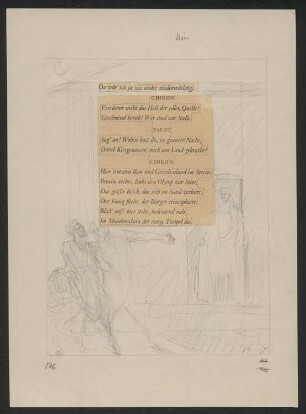 Da wär' ich ja wie andre niederträchtig.
CHIRON
Versäume nicht das Heil der edlen Quelle!
Geschwind herab! Wir sind zur Stelle.
FAUST
Sag' an! Wohin hast du, in grauser Nacht,
Durch Kiesgewässer, mich ans Land gebracht?
CHIRON
Hier trotzten Rom und Griechenland im Streite,
Peneios rechts, links den Olymp zur Seite,
Das größte Reich, das sich im Sand verliert;
Der König flieht, der Bürger triumphiert.
Blick auf! hier steht, bedeutend nah,
Im Mondenschein der ewige Tempel da.
176